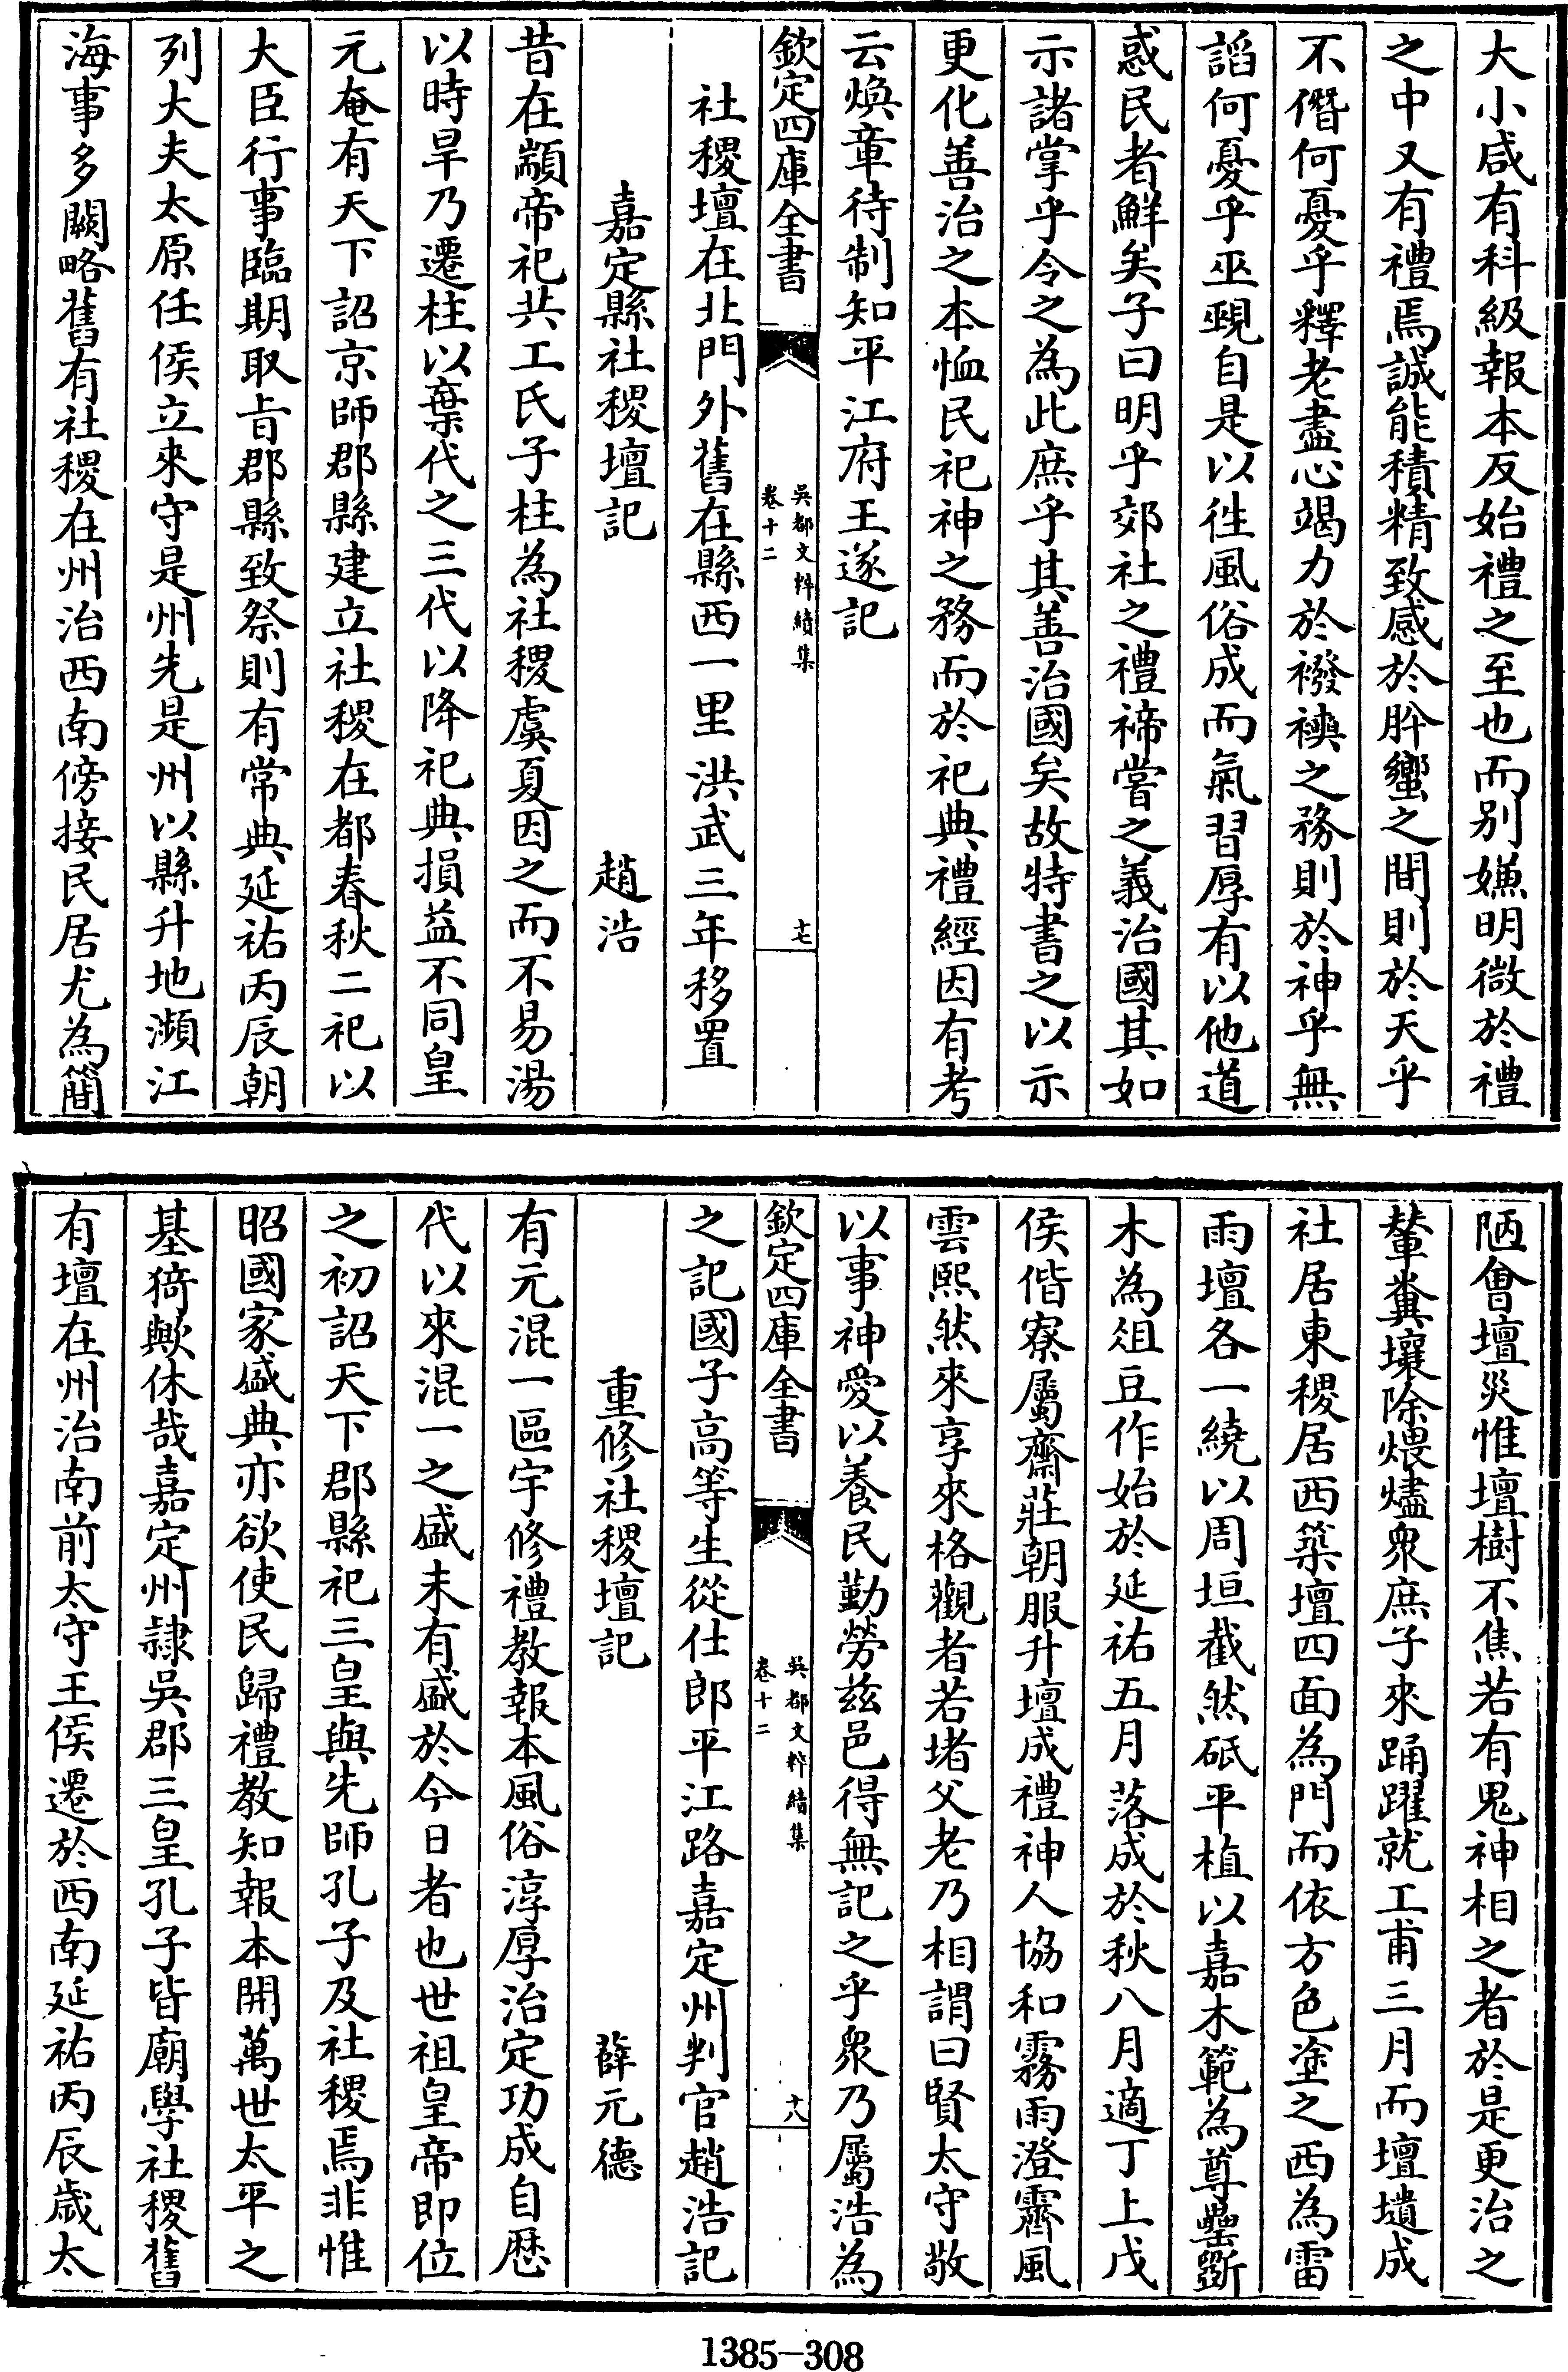 大小咸有科級報本反始禮之至也而别嫌明微於禮
之中又有禮焉誠能積精致感於肸蠁之間則於天乎
不僭何憂乎釋老盡心竭力於襏襫之務則於神乎無
謟何憂乎巫覡自是以徃風俗成而氣習厚有以他道
惑民者鮮矣子曰明乎郊社之禮禘嘗之義治國其如
示諸掌乎令之為此庶乎其善治國矣故特書之以示
更化善治之本恤民祀神之務而於祀典禮經因有考
云煥章待制知平江府王遂記
欽定四庫全書
吳都文粹續集
卷十二
十七
社稷壇在北門外舊在縣西一里洪武三年移置
嘉定縣社稷壇記 趙浩
昔在顓帝祀共工氏子柱為社稷虞夏因之而不易湯
以時旱乃遷柱以棄代之三代以降祀典損益不同皇
元奄有天下詔京師郡縣建立社稷在都春秋二祀以
大臣行事臨期取㫖郡縣致祭則有常典延祐丙辰朝
列大夫太原任侯立來守是州先是州以縣升地瀕江
海事多闕略舊有社稷在州治西南傍接民居尤為簡
陋會壇災惟壇樹不焦若有鬼神相之者於是更治之
輦糞壤除煨燼衆庶子來踊躍就工甫三月而壇壝成
社居東稷居西築壇四面為門而依方色塗之西為雷
雨壇各一繞以周垣截然砥平植以嘉木範為尊罍斵
木為俎豆作始於延祐五月落成於秋八月適丁上戊
侯偕寮屬齋莊朝服升壇成禮神人協和霧雨澄霽風
雲熙然來享來格觀者若堵父老乃相謂曰賢太守敬
以事神愛以養民勤勞兹邑得無記之乎衆乃屬浩為
欽定四庫全書
吳都文粹續集
卷十二
十八
之記國子高等生從仕郎平江路嘉定州判官趙浩記
重修社稷壇記 薛元德
有元混一區宇修禮教報本風俗淳厚治定功成自歴
代以來混一之盛未有盛於今日者也世祖皇帝即位
之初詔天下郡縣祀三皇與先師孔子及社稷焉非惟
昭國家盛典亦欲使民歸禮教知報本開萬世太平之
基猗歟休哉嘉定州隷吳郡三皇孔子皆廟學社稷舊
有壇在州治南前太守王侯遷於西南延祐丙辰歲太
1385-308